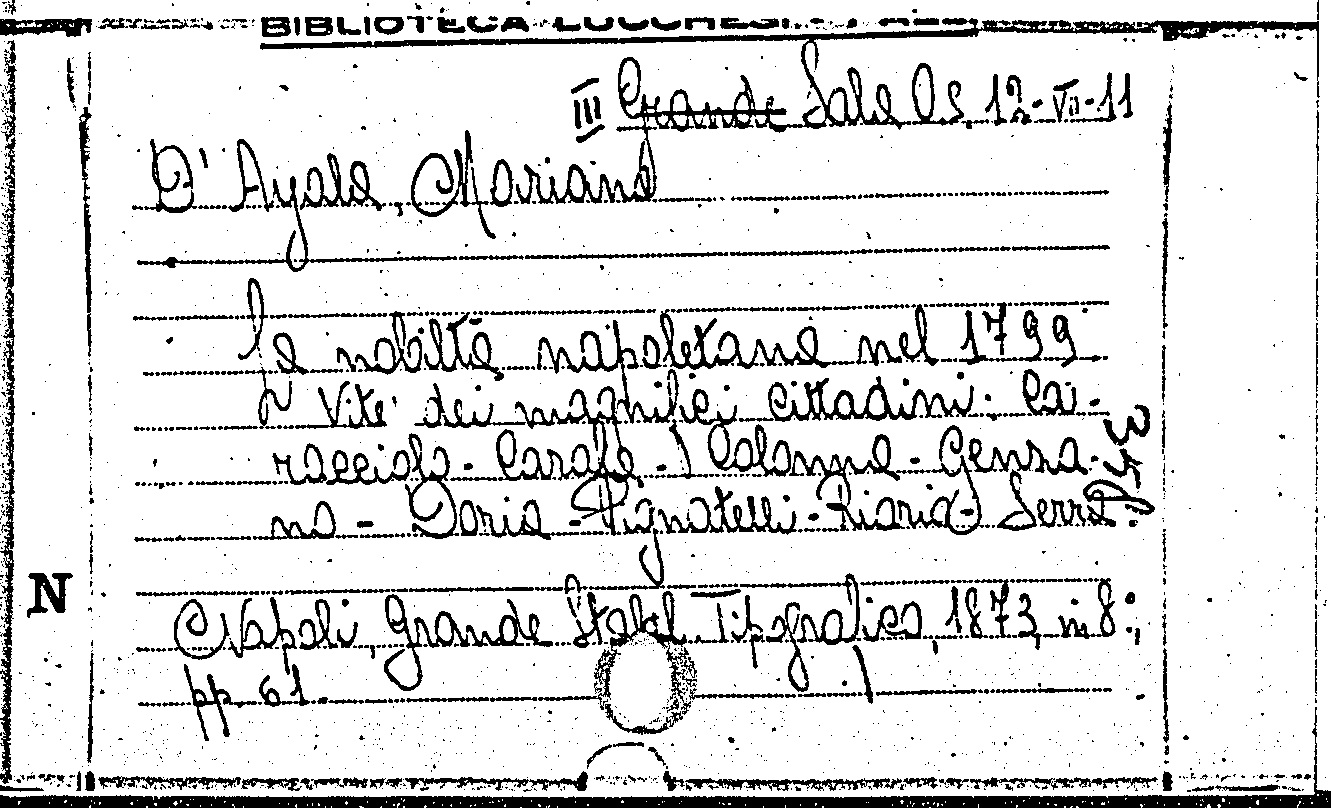 BIBLIOTECA LUCCHESI
III Grande Sala Os. 12-VII-11
D'Ayala, Mariano
La nobiltà napoletana nel 1799
Vite dei magnifici cittadini: Ca-
racciolo - Carafa - Colonna - Genza-
no - Doria - Pignatelli - Riario - Serra.
N
Napoli, Grande Stabil. Tipografico, 1873, in 8°;
pp. 61.